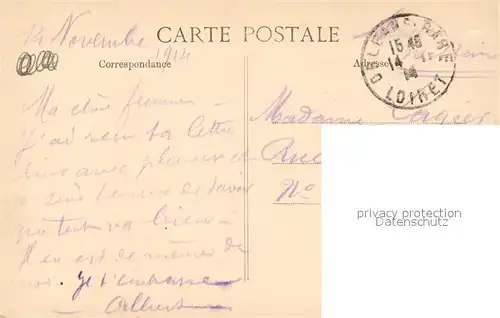 14 Novembre
1914
CARTE POSTALE
Correspondance
Adresse
ORLEANS GARE
15 45
14 11
14
LOIRET
Ma chère femme
J'ai reçu ta lettre
hier avec plaisir et
heureux de savoir
que tout va bien
Il en est de même de
moi. Je t'embrasse
Albert
Madame Lagier
Rue
No
property protection
www.delcampe.net